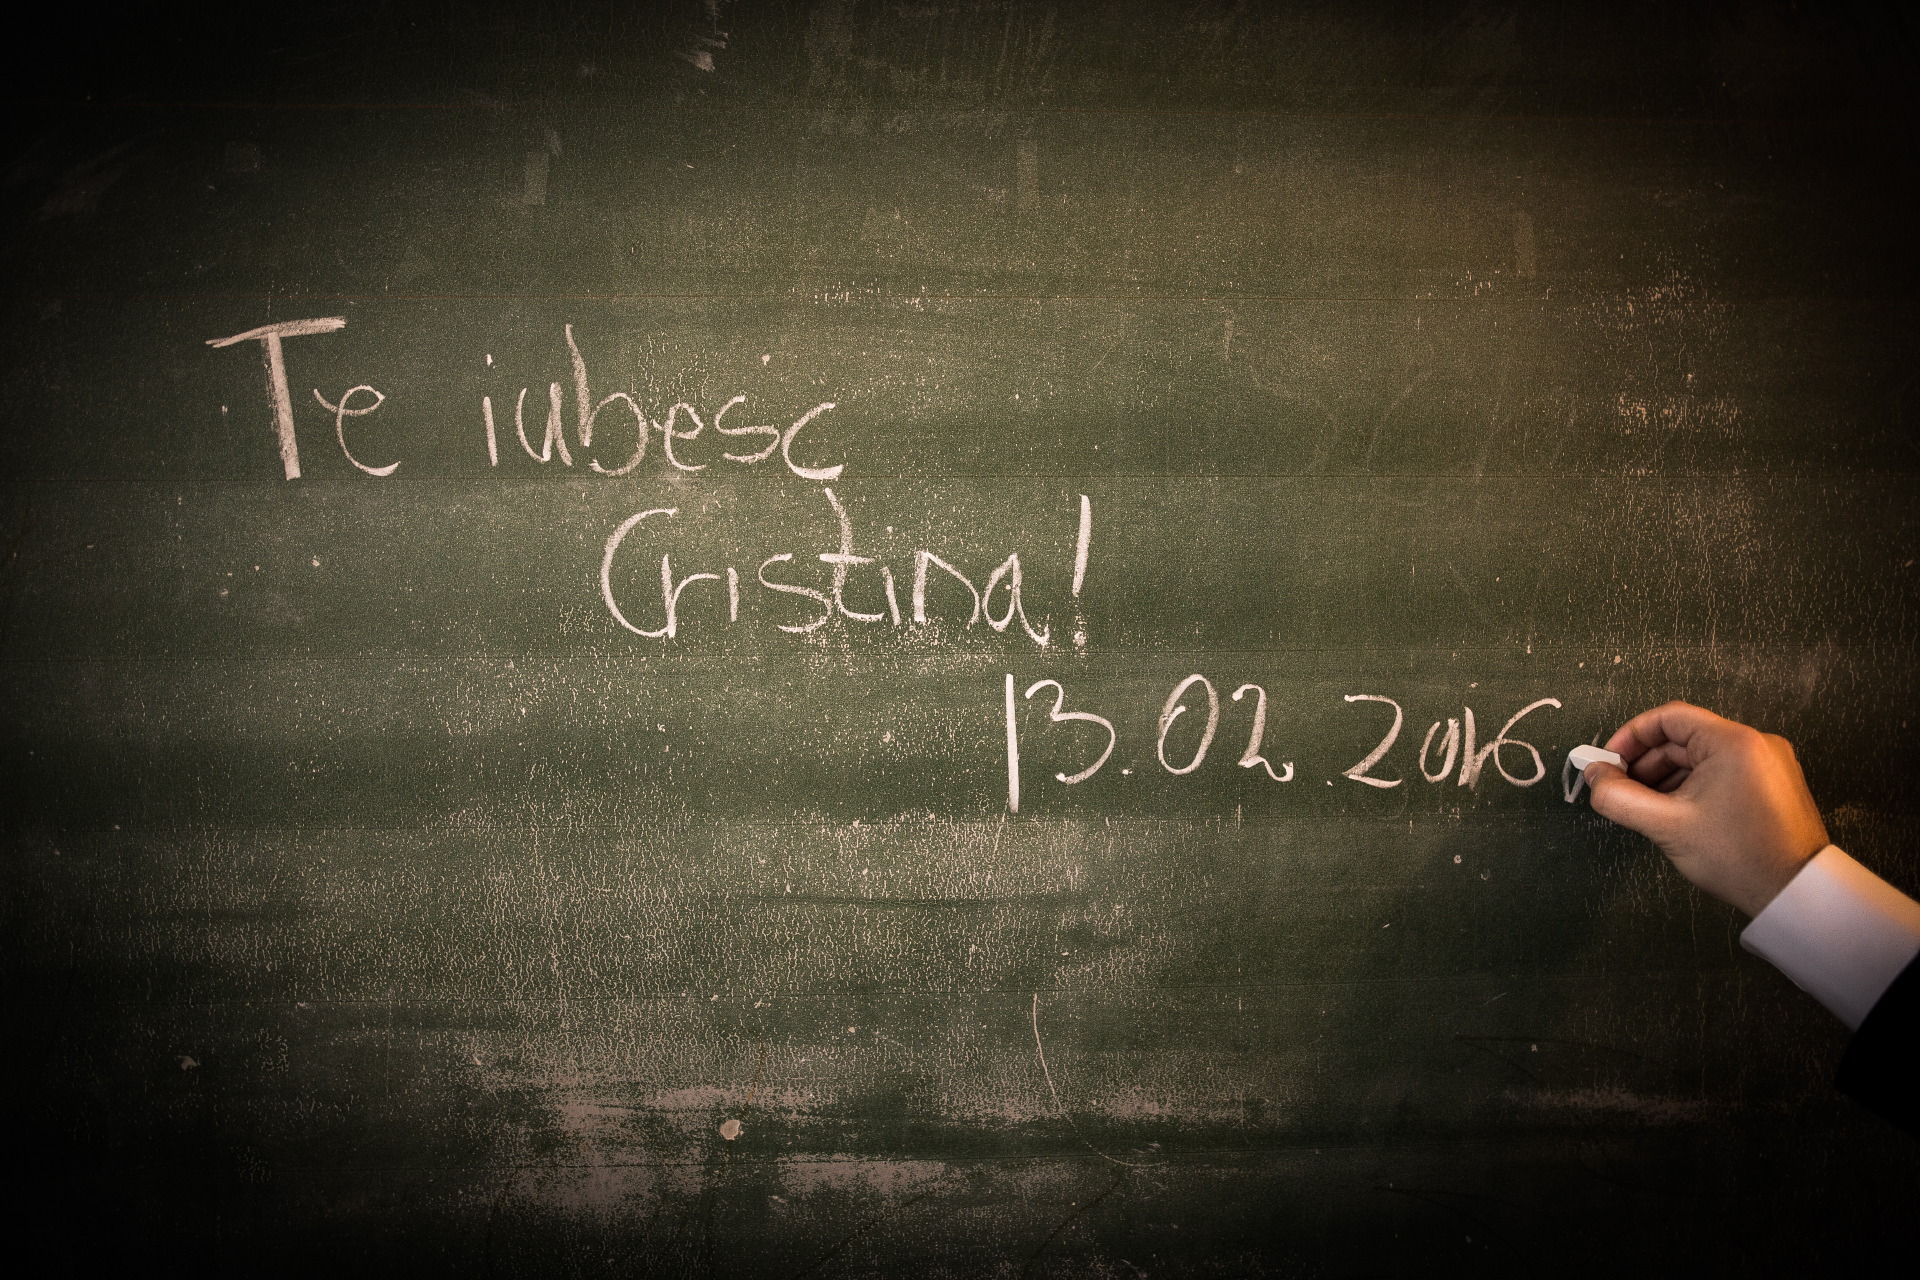 Te iubesc
Cristina!
13.02.2016